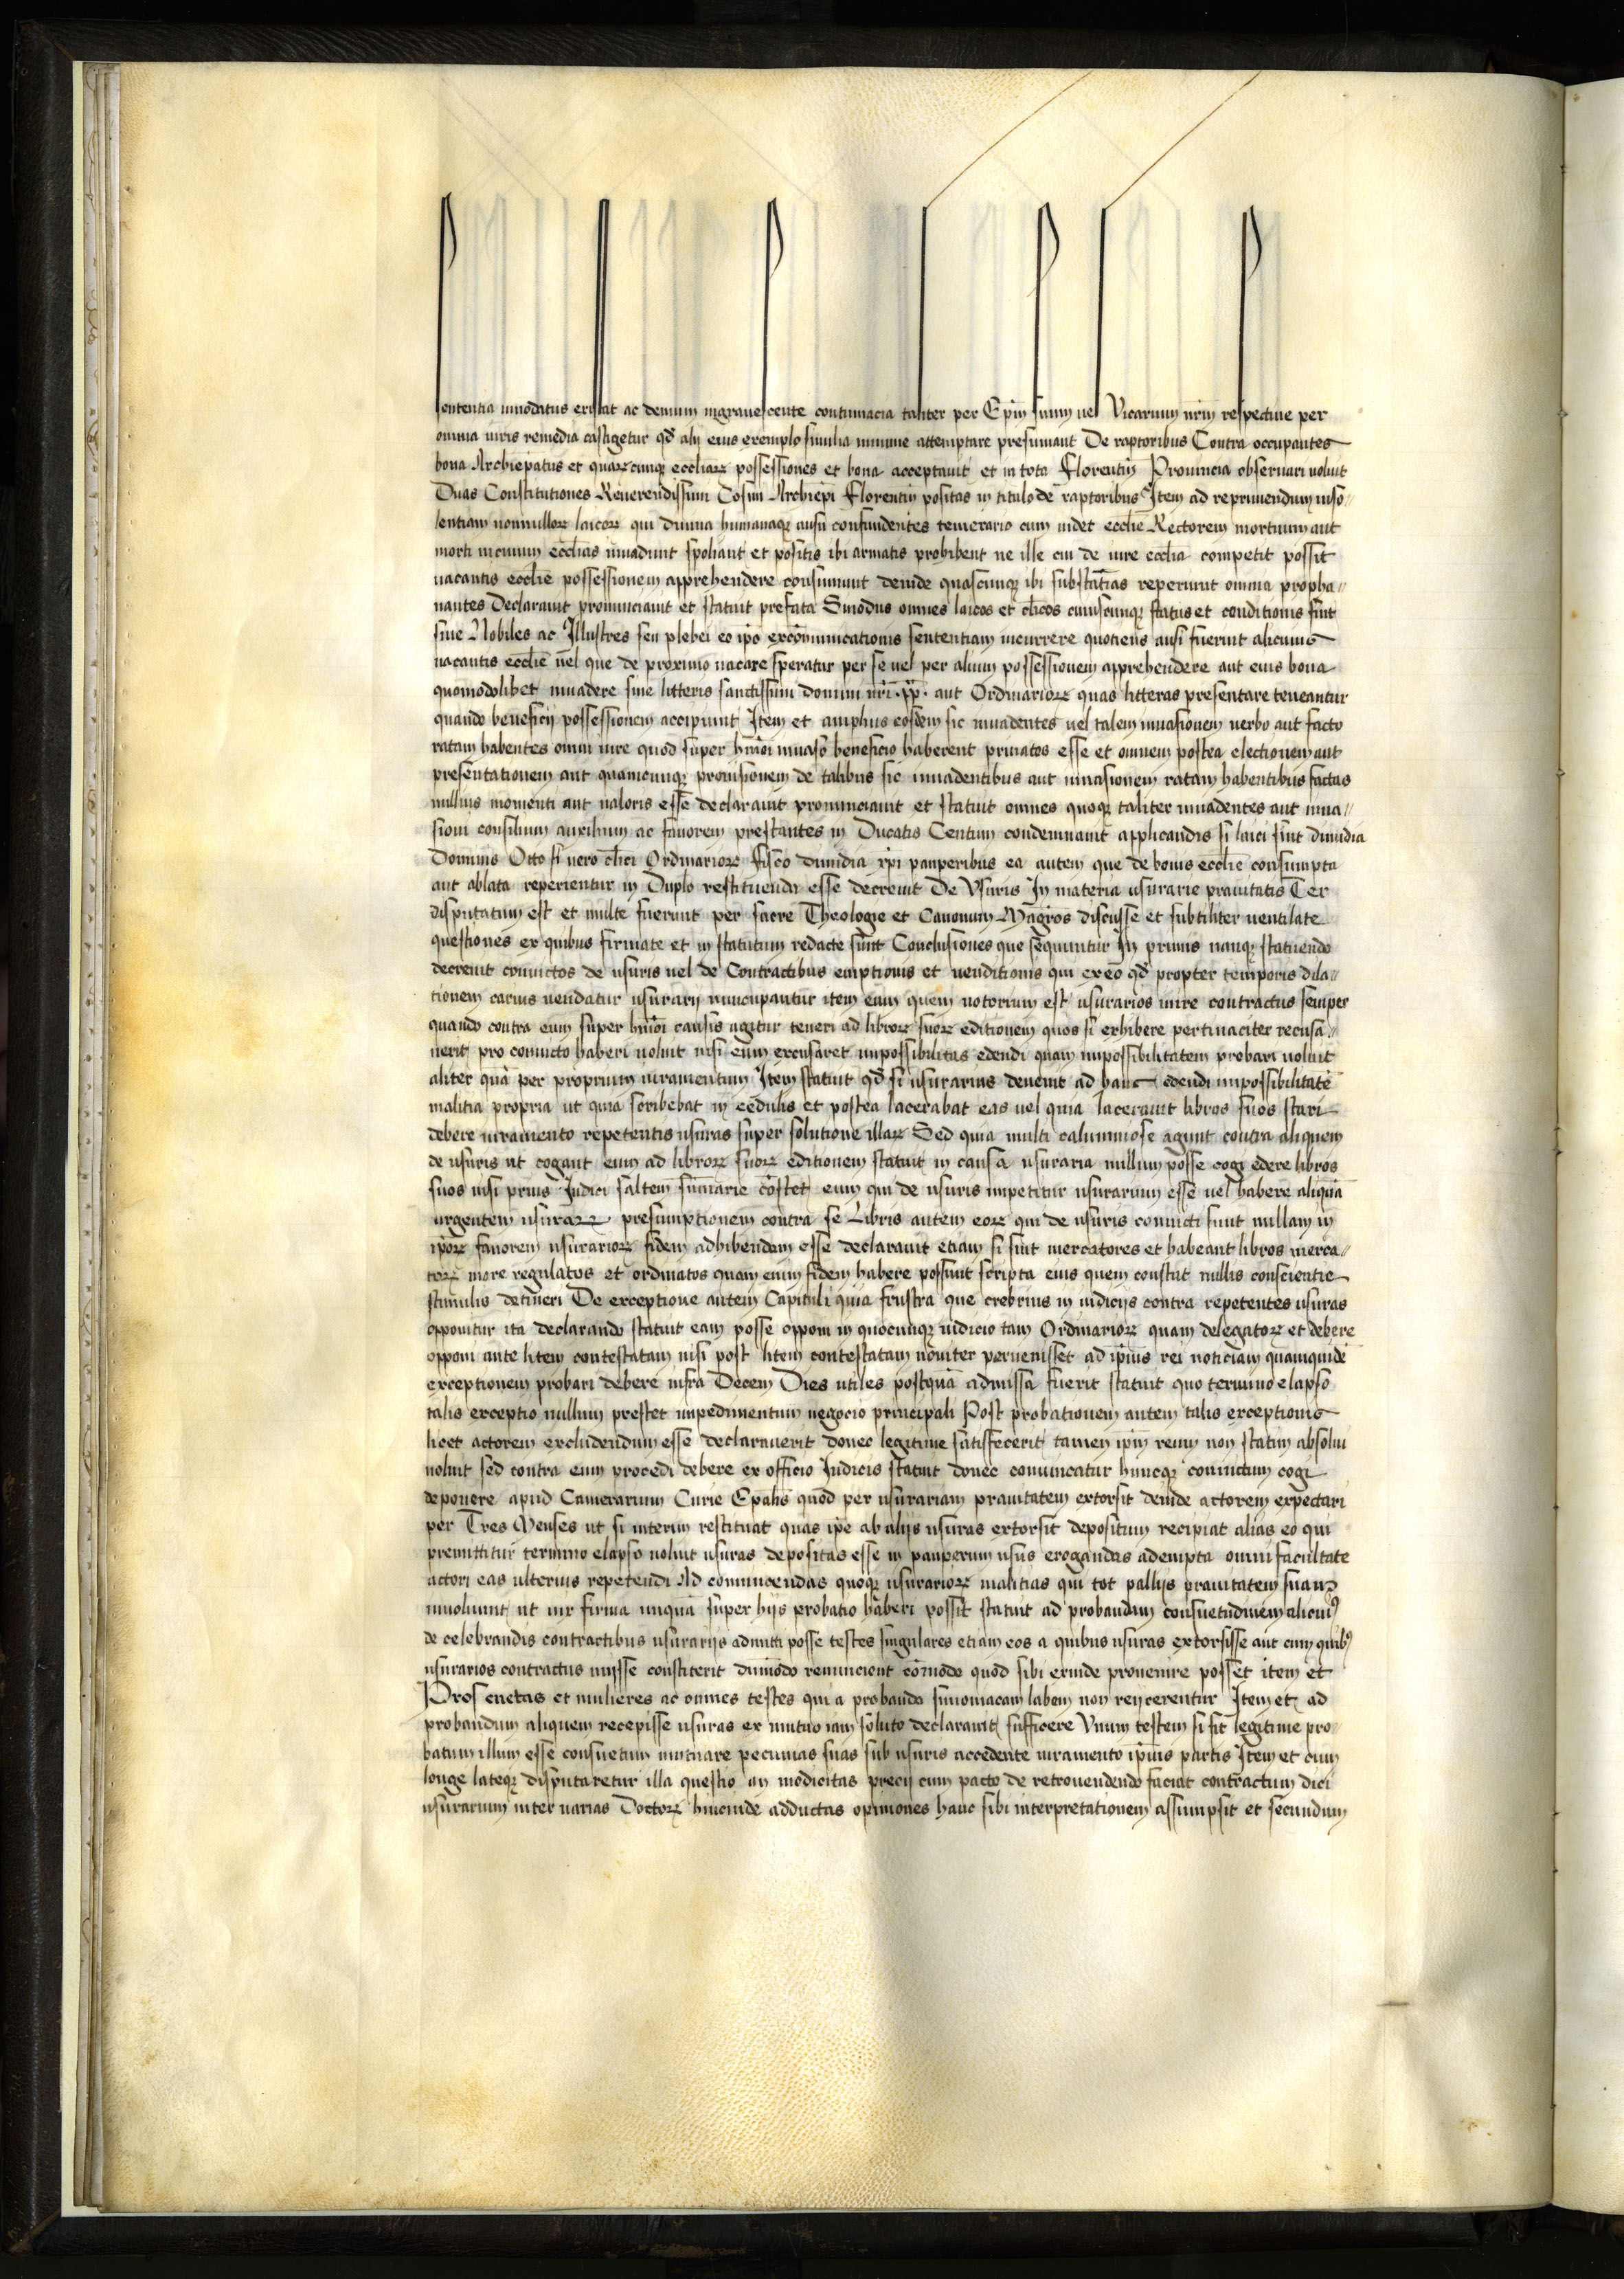 sententia innodatus existat ac demum ingravescente contumacia taliter per Ep̄m suum uel Vicarium nr̄m respectiue per
omnia iuris remedia castigetur qđ alij eius exemplo similia minime attemptare presumant De raptoribus Contra occupantes
bona Archiep̄atus et quarũcunqꝫ eccliarꝫ possessiones et bona acceptauit et in tota Florentin̄ Prouincia obseruari uoluit
Duas Constitutiones Reuerendissimi Cosmi Archiepī Florentin̄ positas in titulo de raptoribus Item ad reprimendum inso//
lentiam nonnullorꝫ laicorꝫ qui diuina humanaqꝫ ausu confundentes temerario cum uidet̄ ecclie Rectorem mortuum aut
morti uicinum ecclias inuadunt spoliant et positis ibi armatis prohibent ne ille cui de iure ecclia competit possit
uacantis ecclie possessionem apprehendere consumunt deinde quascunqꝫ ibi substātias reperiunt omnia propha//
nantes Declarauit pronunciauit et statuit prefata Sinodus omnes laicos et cl̄icos cuiuscunqꝫ status et conditionis sint
siue Nobiles ac Illustres seu plebei eo ip̄o excōmunicationis sententiam incurrere quotiens ausi fuerint alicuius
uacantis ecclie uel que de proximo uacare speratur per se uel per alium possessionem apprehendere aut eius bona
quomodolibet inuadere sine litteris sanctissimi domini nr̄i .pp̄. aut Ordinariorꝫ quas litteras presentare teneantur
quando beneficij possessionem accipiunt Item et amplius eosdem sic inuadentes uel talem inuasionem uerbo aut facto
ratam habentes omni iure quod super hm̄oi inuaso beneficio haberent priuatos esse et omnem postea electionem aut
presentationem aut quamcunqꝫ prouisionem de talibus sic inuadentibus aut inuasionem ratam habentibus factas
nullius momenti aut ualoris esse declarauit pronunciauit et statuit omnes quoqꝫ taliter inuadentes aut inua//
sioni consilium auxilium ac fauorem prestantes in Ducatis Centum condemnauit applicandis si laici sint dimidia
Dominis Octo si uero cl̄ici Ordinariorꝫ fisco dimidia xp̄i pauperibus ea autem que de bonis ecclie consumpta
aut ablata reperientur in Duplo restituenda esse decreuit De Vsuris In materia usurarie prauitatis Ter
disputatum est et multe fuerunt per sacre Theologie et Canonum Magr̄os discusse et subtiliter uentilate
questiones ex quibus firmate et in statutum redacte sunt Conclusiones que sequuntur In primis nanqꝫ statuendo
decreuit conuictos de usuris uel de Contractibus emptionis et uenditionis qui ex eo qđ propter temporis dila//
tionem carius uendatur usurarij nuncupantur item eum quem notorium est usurarios inire contractus semper
quando contra eum super hm̄oi causis agitur teneri ad librorꝫ suorꝫ editionem quos si exhibere pertinaciter recusa//
uerit pro conuicto haberi uoluit nisi eum excusaret impossibilitas edendi quam impossibilitatem probari uoluit
aliter quā per proprium iuramentum Item statuit qđ si usurarius deuenit ad hanc edendi impossibilitatē
malitia propria ut quia scribebat in cedulis et postea lacerabat eas uel quia lacerauit libros suos stari
debere iuramento repetentis usuras super solutione illarꝫ Sed quia multi calumniose agunt contra aliquem
de usuris ut cogant eum ad librorꝫ suorꝫ editionem statuit in causa usuraria nullum posse cogi edere libros
suos nisi prius Iudici saltem sūmarie cōstet eum qui de usuris impetitur usurarium esse uel habere aliquā
urgentem usurarꝫ presumptionem contra se Libris autem eorꝫ qui de usuris conuicti sunt nullam in
ip̄orꝫ fauorem usurariorꝫ fidem adhibendam esse declarauit etiam si sint mercatores et habeant libros merca//
torꝫ more regulatos et ordinatos quam enim fidem habere possunt scripta eius quem constat nullis conscientie
stimulis detineri De exceptione autem Capituli quia frustra que crebrius in iudicijs contra repetentes usuras
opponitur ita declarando statuit eam posse opponi in quocunqꝫ iudicio tam Ordinariorꝫ quam delegatorꝫ et debere
opponi ante litem contestatam nisi post litem contestatam nouiter peruenisset ad ip̄ius rei noticiam quamquidē
exceptionem probari debere infra Decem Dies utiles postquā admissa fuerit statuit quo termino elapso
talis exceptio nullum prestet impedimentum negocio principali Post probationem autem talis exceptionis
licet actorem excludendum esse declarauerit donec legitime satisfecerit tamen ip̄m reum non statim absolui
uoluit sed contra eum procedi debere ex officio Iudicis statuit donec conuincatur huncqꝫ conuictum cogi
deponere apud Camerarium Curie Ep̄alis quod per usurariam prauitatem extorsit deinde actorem expectari
per Tres Menses ut si interim restituat quas ip̄e ab alijs usuras extorsit depositum recipiat alias eo qui
premittitur termino elapso uoluit usuras depositas esse in pauperum usus erogandas adempta omni facultate
actori eas ulterius repetendi Ad conuincendas quoqꝫ usurariorꝫ malitias qui tot pallijs prauitatem suam
inuoluunt ut uix firma unquā super hijs probatio haberi possit statuit ad probandam consuetudinem alicuiꝰ
de celebrandis contractibus usurarijs admitti posse testes singulares etiam eos a quibus usuras extorsisse aut cum quibꝰ
usurarios contractus inijsse constiterit dummodo renuncient cōmodo quod sibi exinde prouenire posset item et
Prosenetas et mulieres ac omnes testes qui a probando simoniacam labem non reijcerentur Item et ad
probandum aliquem recepisse usuras ex mutuo iam soluto declarauit sufficere Vnum testem si sit legitime pro//
batum illum esse consuetum mutuare pecunias suas sub usuris accedente iuramento ip̄ius partis Item et cum
longe lateqꝫ disputaretur illa questio an modicitas precij cum pacto de retrouendendo faciat contractum dici
usurarium inter uarias Doctorꝫ hincinde adductas opiniones hanc sibi interpretationem assumpsit et secundum